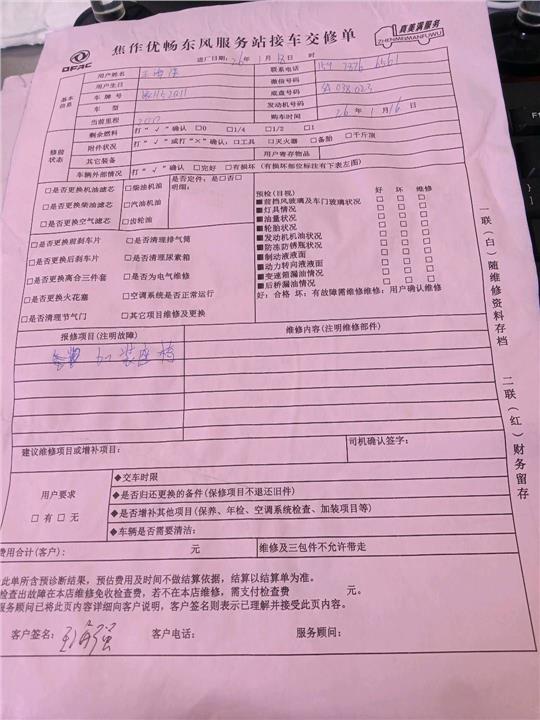 DFAC
焦作优畅东风服务站接车交修单
真美满服务
ZHENMEIMANFUWU
进厂日期: 26年 1月 18日 时
基本信息
用户姓名
联系电话
用户生日
微信号码
车牌号
底盘号码
车型
发动机号码
当前里程
购车时间 26年 1月16日
修前状态
剩余燃料 打“√”确认 □0 □1/4 □1/2 □1
附件状况 打“√”或打“×”确认:□工具 □灭火器 □备胎 □千斤顶
其它装备 用户寄存物品
车辆外部情况 打“√”确认 □完好 □有损坏(有损坏部位标注有下表左图)
□是否更换机油滤芯 □柴油机油 是否定件:是□否□
明细:
□是否更换柴油滤芯 □汽油机油
□是否更换空气滤芯 □齿轮油
□是否更换前刹车片 □是否清理排气筒
□是否更换后刹车片 □是否清理尿素箱
□是否更换离合三件套 □是否为电气维修
□是否更换火花塞 □空调系统是否正常运行
□是否清理节气门 □其它项目维修及更换
预检(目视) 好 坏 维修
■前挡风玻璃及车门玻璃状况 □ □ □
■灯具情况 □ □ □
■油量状况 □ □ □
■轮胎状况 □ □ □
■发动机机油状况 □ □ □
■防冻防锈瓶状况 □ □ □
■制动液液面 □ □ □
■动力转向液液面 □ □ □
■变速箱漏油情况 □ □ □
■后桥漏油情况 □ □ □
好:合格 坏:有故障需维修维修:用户确认维修
报修项目(注明故障) 维修内容(注明维修部件)
加装座椅
建议维修项目或增补项目: 司机确认签字:
用户要求
□有 □无
◆交车时限
◆是否归还更换的备件(保修项目不退还旧件)
◆是否增补其他项目(保养、年检、空调系统检查、加装项目等)
◆车辆是否需要清洁:
费用合计(客户): 元 维修及三包件不允许带走
此单所含预诊断结果,预估费用及时间不做结算依据,结算以结算单为准。
检查出故障在本店维修免收检查费,若不在本店维修,需支付检查费 元。
服务顾问已将此页内容详细向客户说明,客户签名则表示已理解并接受此页内容。
客户签名: 客户电话: 服务顾问:
一联(白)随维修资料存档
二联(红)财务留存